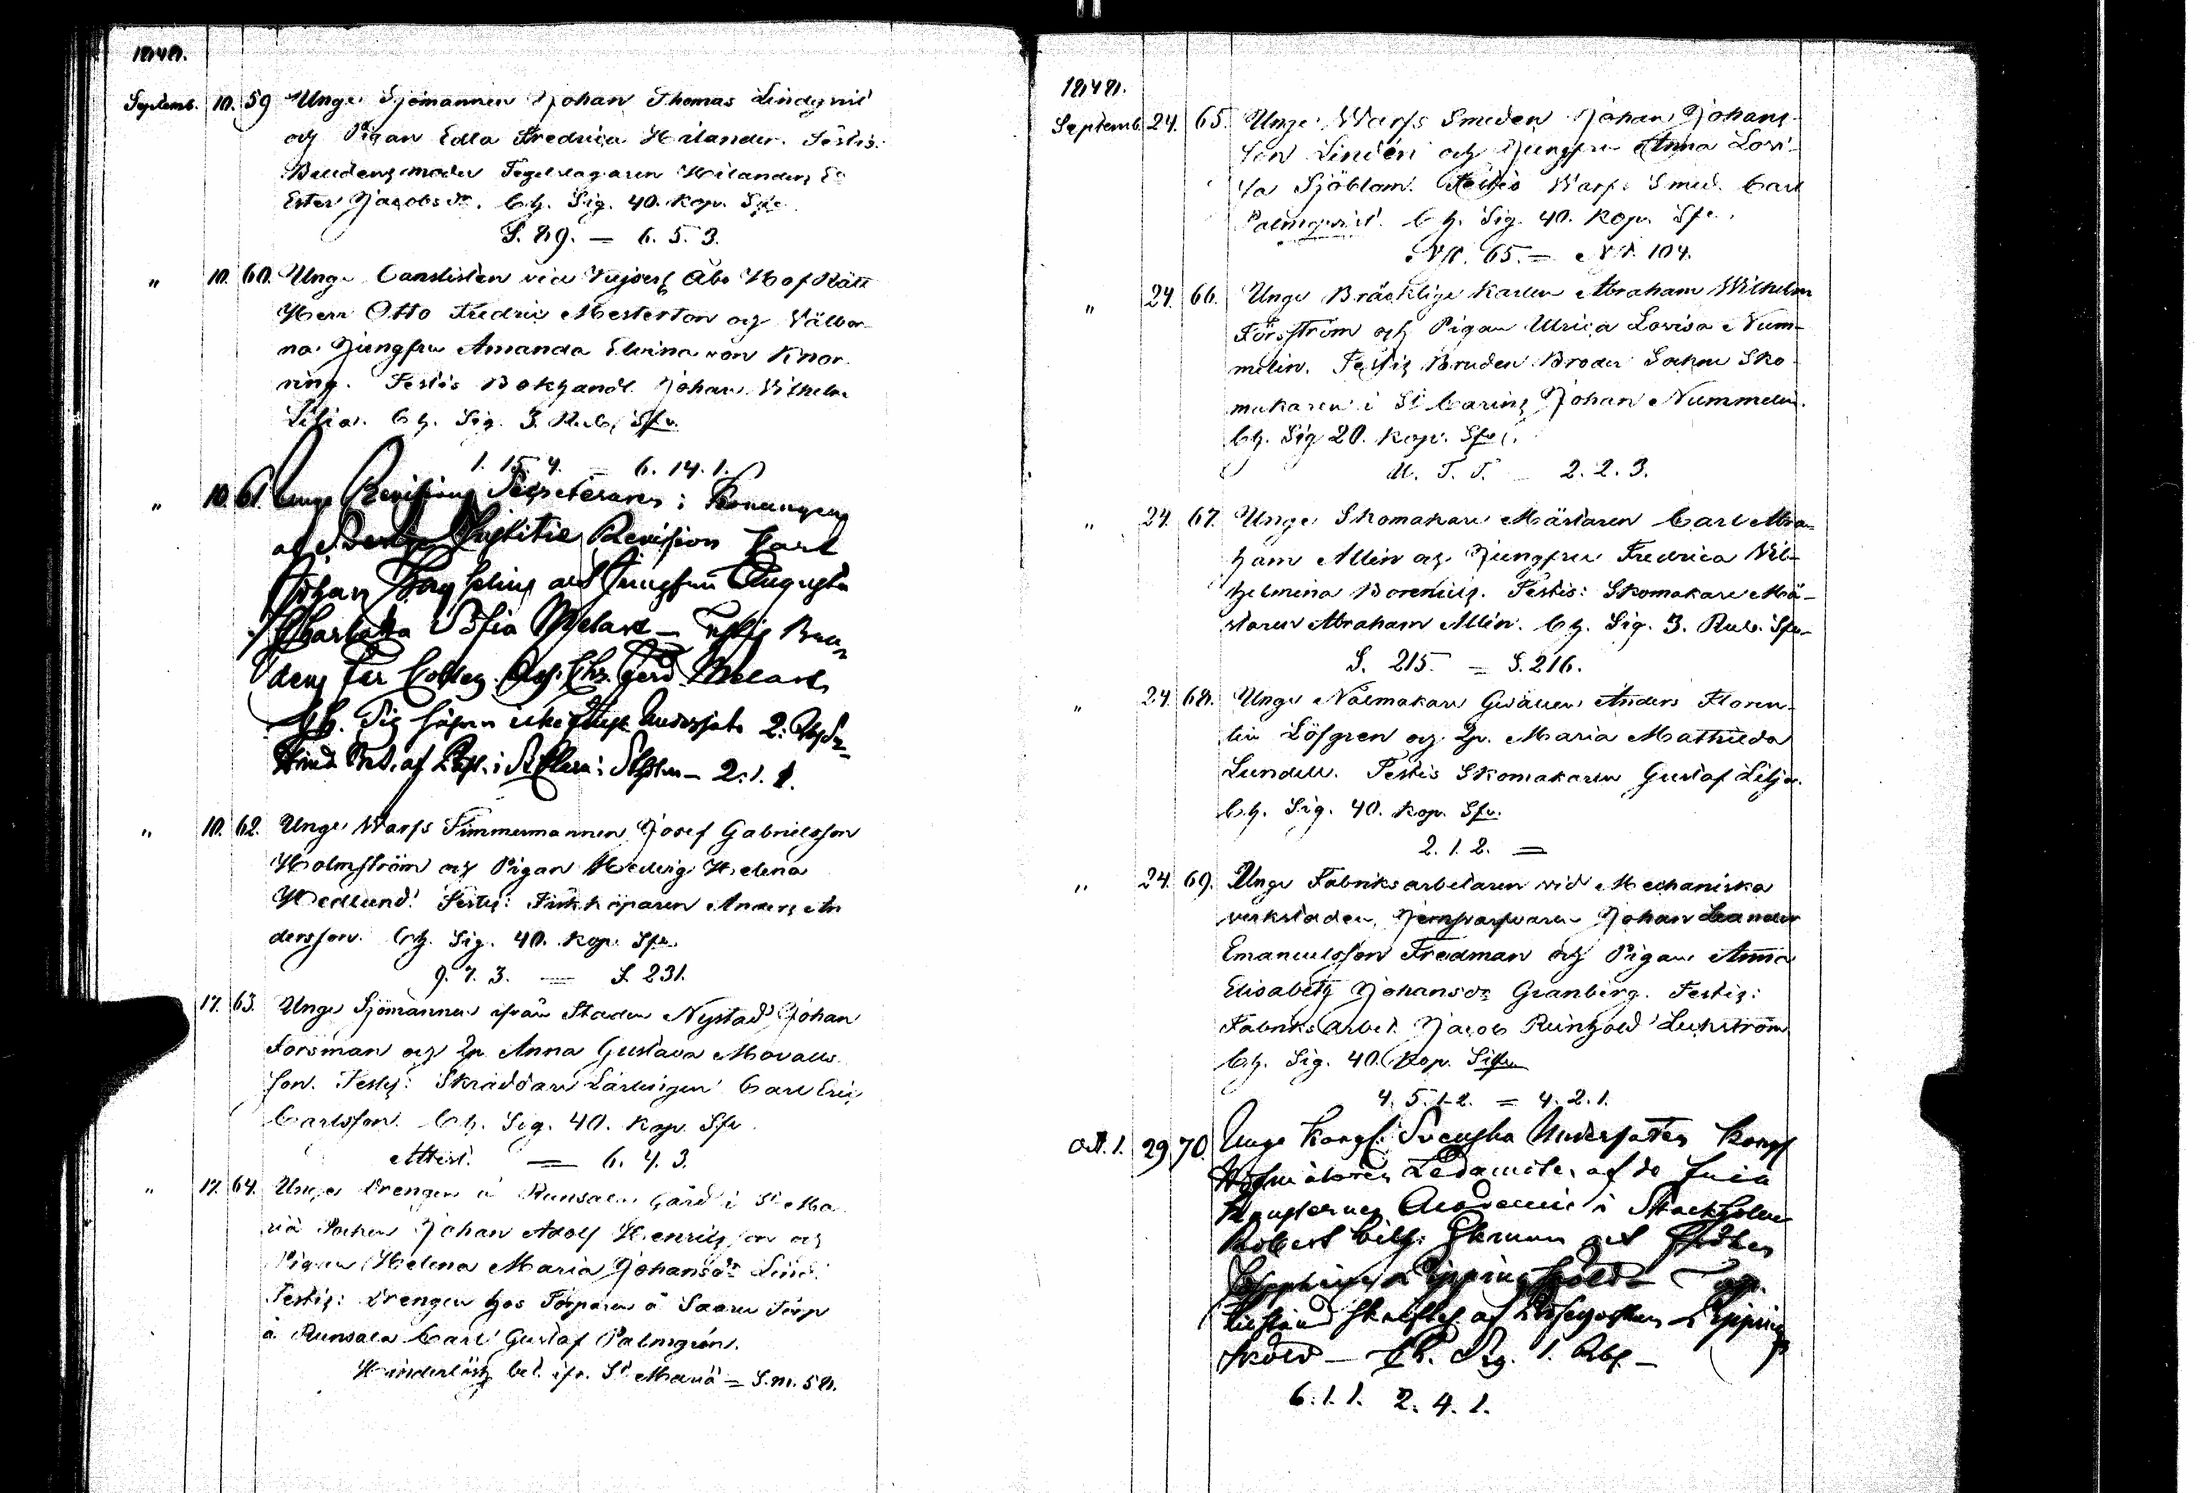 1848.
Septemb. 10. 59 Unge Sjömannen Johan Thomas Lindqvist
och Pigan Edla Fredrica Hilander. Testis:
Brudens moder Tegelslagaren Hilanders
Ester Jacobsdr. Ch. Sig. 40. Kop. Sfr.
S. 89. — 6. 5. 3.
" 10. 60. Unge Canslisten vid Kejserl. Åbo Hof Rätt
Herr Otto Fredric Mesterton och Välbor-
na Jungfru Amanda Elvina von Knor-
ring. Testis Bokhandl. Johan Wilhelm
Lilja. Ch. Sig. 3. Rub. Sfr.
1. 15. 4. — 6. 14. 1.
" 10. 61. Unge Revisions Secreteraren i Konungens
af Sverige Justitie Revision Carl
Johan och Jungfrun Augusta
Charlotta Sofia Melart — Testis Bru-
dens Far Colleg. Ass. Chr. Ferd. Melart
Ch. Sig. 2. Rub.
i St Clara i Sthlm — 2. 1. 1.
" 10. 62. Unge Warfs Timmermannen Josef Gabrielsson
Holmström och Pigan Hedvig Helena
Hedlund. Testis: Fiskköparen Anders An
dersson. Ch. Sig. 40. Kop. Sfr.
9. 7. 3. — S. 231.
17. 63. Unge Sjömannen ifrån Staden Nystad Johan
Forsman och Jp. Anna Gustava
son. Testis: Skräddare Lärlingen Carl Eric
Carlsson. Ch. Sig. 40. Kop. Sfr.
Attest. — 6. 4. 3.
" 17. 64. Unge Drengen å Runsala Gård i St Ma
riæ Socken Johan Adolf Henricsson och
Pigan Helena Maria Johansdr Lind.
Testis: Drengen hos Torparen å Saaris Torp
å Runsala Carl Gustaf Palmgrén.
Hinderlösh. bet. ifr. St Mariæ = S. m. 58.
1848.
Septemb. 24. 65. Unge Warfs Smeden Johan Johans-
son Lindén och Jungfru Anna Lovi-
sa Sjöblom. Testis Warfs Smed. Carl
Palmqvist. Ch. Sig. 40. Kop. Sfr.
N.Q. 65. — N.Q. 104.
" 24. 66. Unge Bräcklige Karlen Abraham Wilhelm
Forsström och Pigan Ulrica Lovisa Num-
melin. Testis Brudens Broder Socken Sko-
makaren i St Carins Johan Nummelin.
Ch. Sig 20. Kop. Sfr.
U. T. T. — 2. 2. 3.
" 24. 67. Unge Skomakare Mästaren Carl Abra-
ham Allén och Jungfru Fredrica Wil-
helmina Borenius. Testis: Skomakare Mä-
staren Abraham Allén. Ch. Sig. 3. Rub. Sfr.
S. 215. = S. 216.
" 24. 68. Unge Nålmakare Gesällen Anders Floren-
tin Löfgren och Jp. Maria Mathilda
Lundell. Testis Skomakaren Gustaf Lilja.
Ch. Sig. 40. Kop. Sfr.
2. 1. 2. =
" 24. 69. Unge Fabriksarbetaren vid Mechaniska
verkstaden, Jernsvarfvaren Johan Leander
Emanuelsson Fredman och Pigan Anna
Elisabeth Johansdr Granberg. Testis:
Fabriksarbet. Jacob Reinhold Luckström
Ch. Sig. 40. Kop. Sfr.
4. 5. 1-2. = 4. 2. 1.
Oct. 1. 29 70. Unge Kongl. Svenska Undersåten Kongl
Hofmålaren Ledamoten af de fria
Konsternas Academie i Stockholm
Robert Wilh. Ekman och Fröken
Rippingsköld —
af Ripping
sköld — Ch. Sig. 1. Rbl —
6. 1. 1. 2. 4. 1.